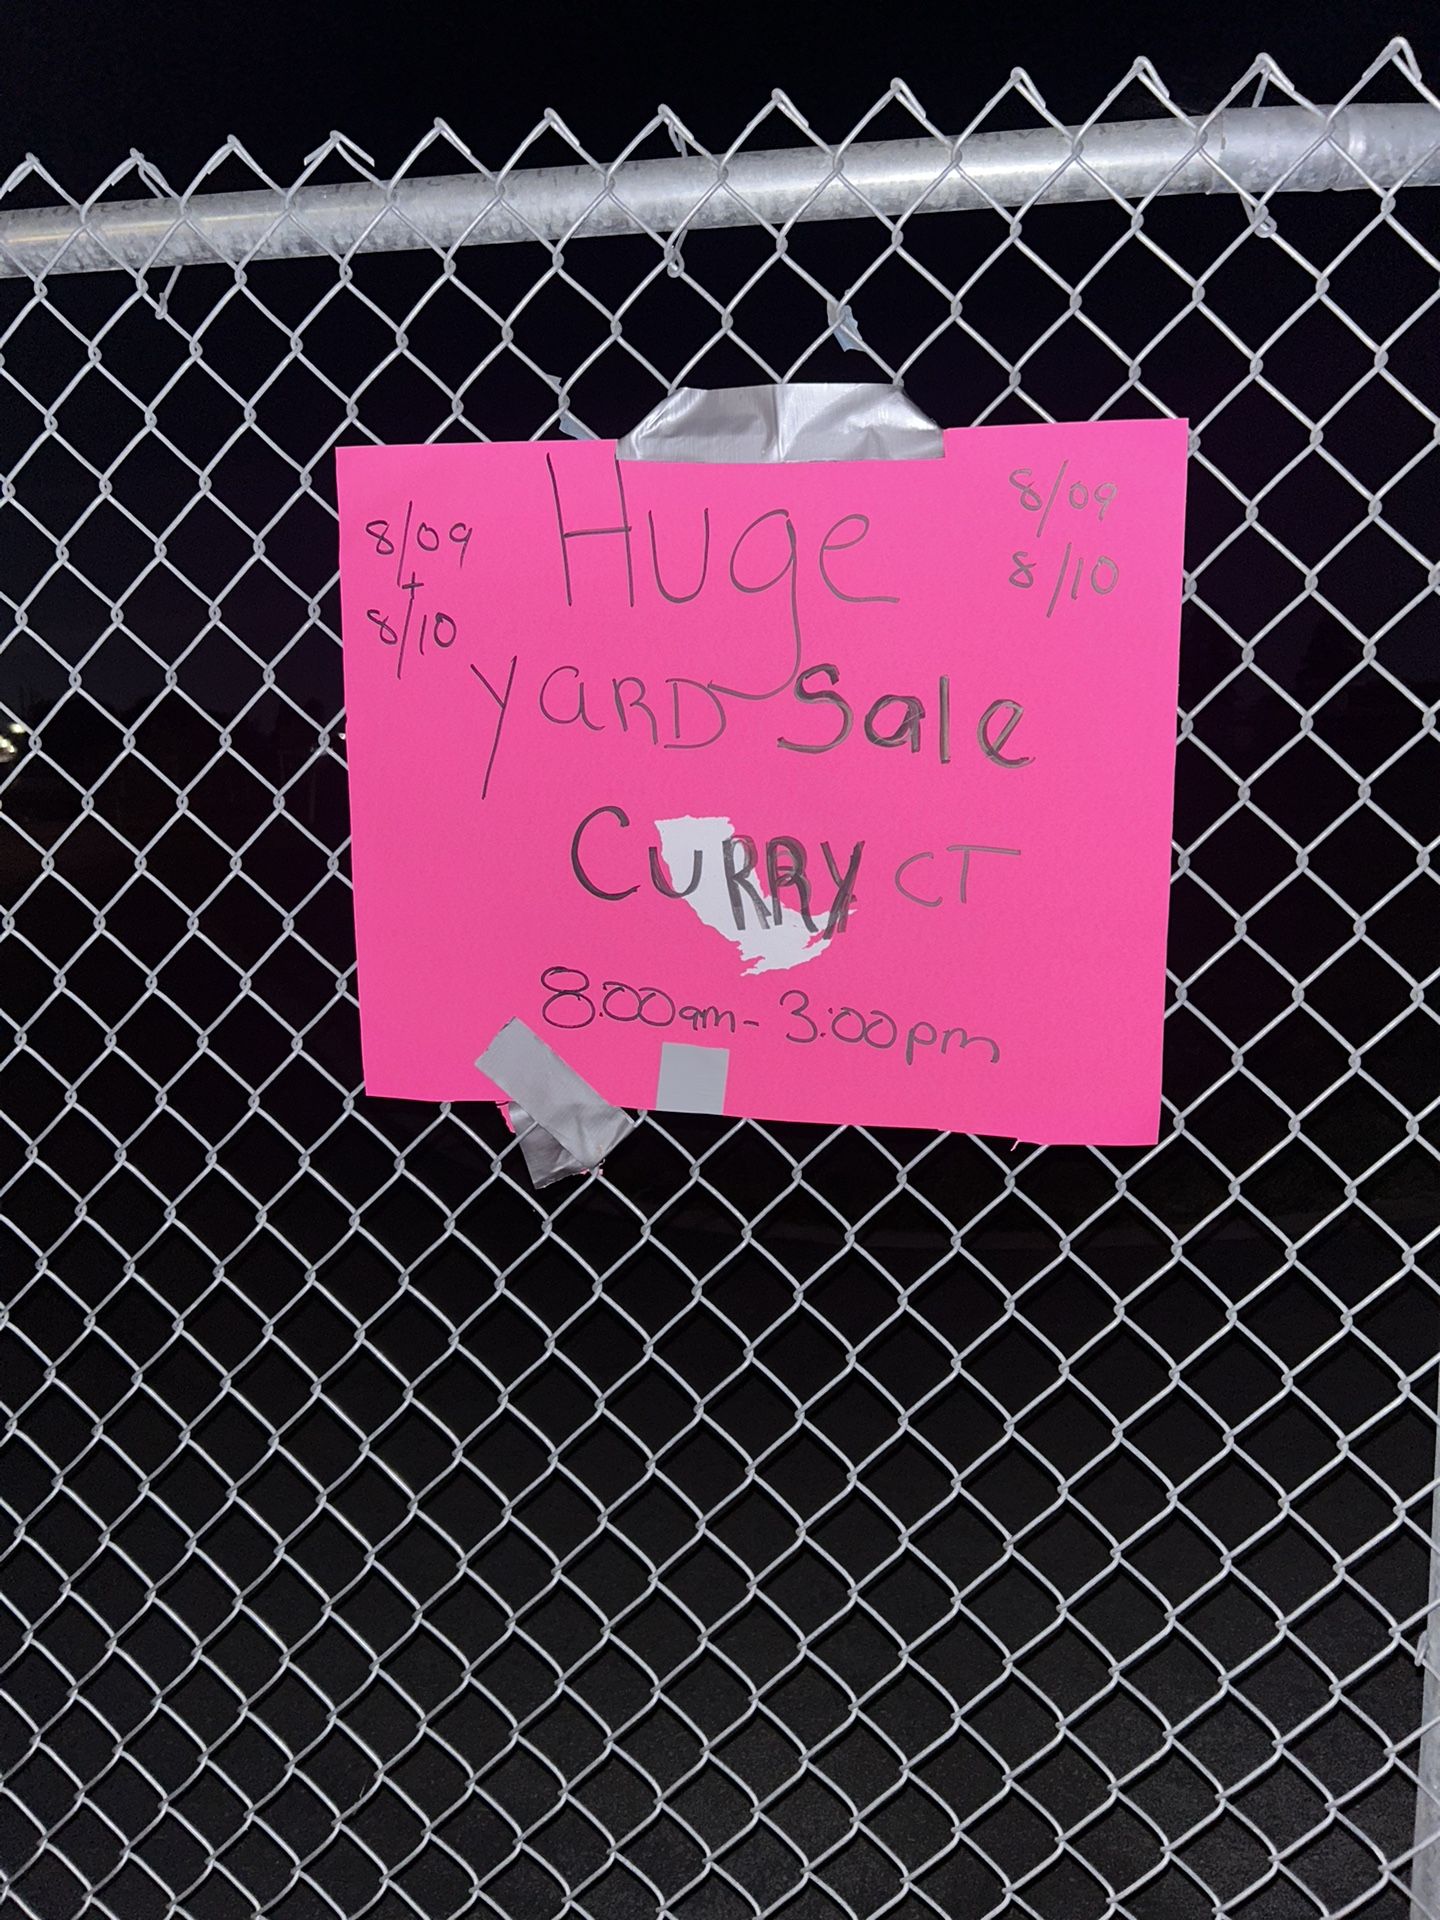 Huge
8/09
+
8/10
8/09
8/10
YARD Sale
CURRY CT
8:00am - 3:00pm